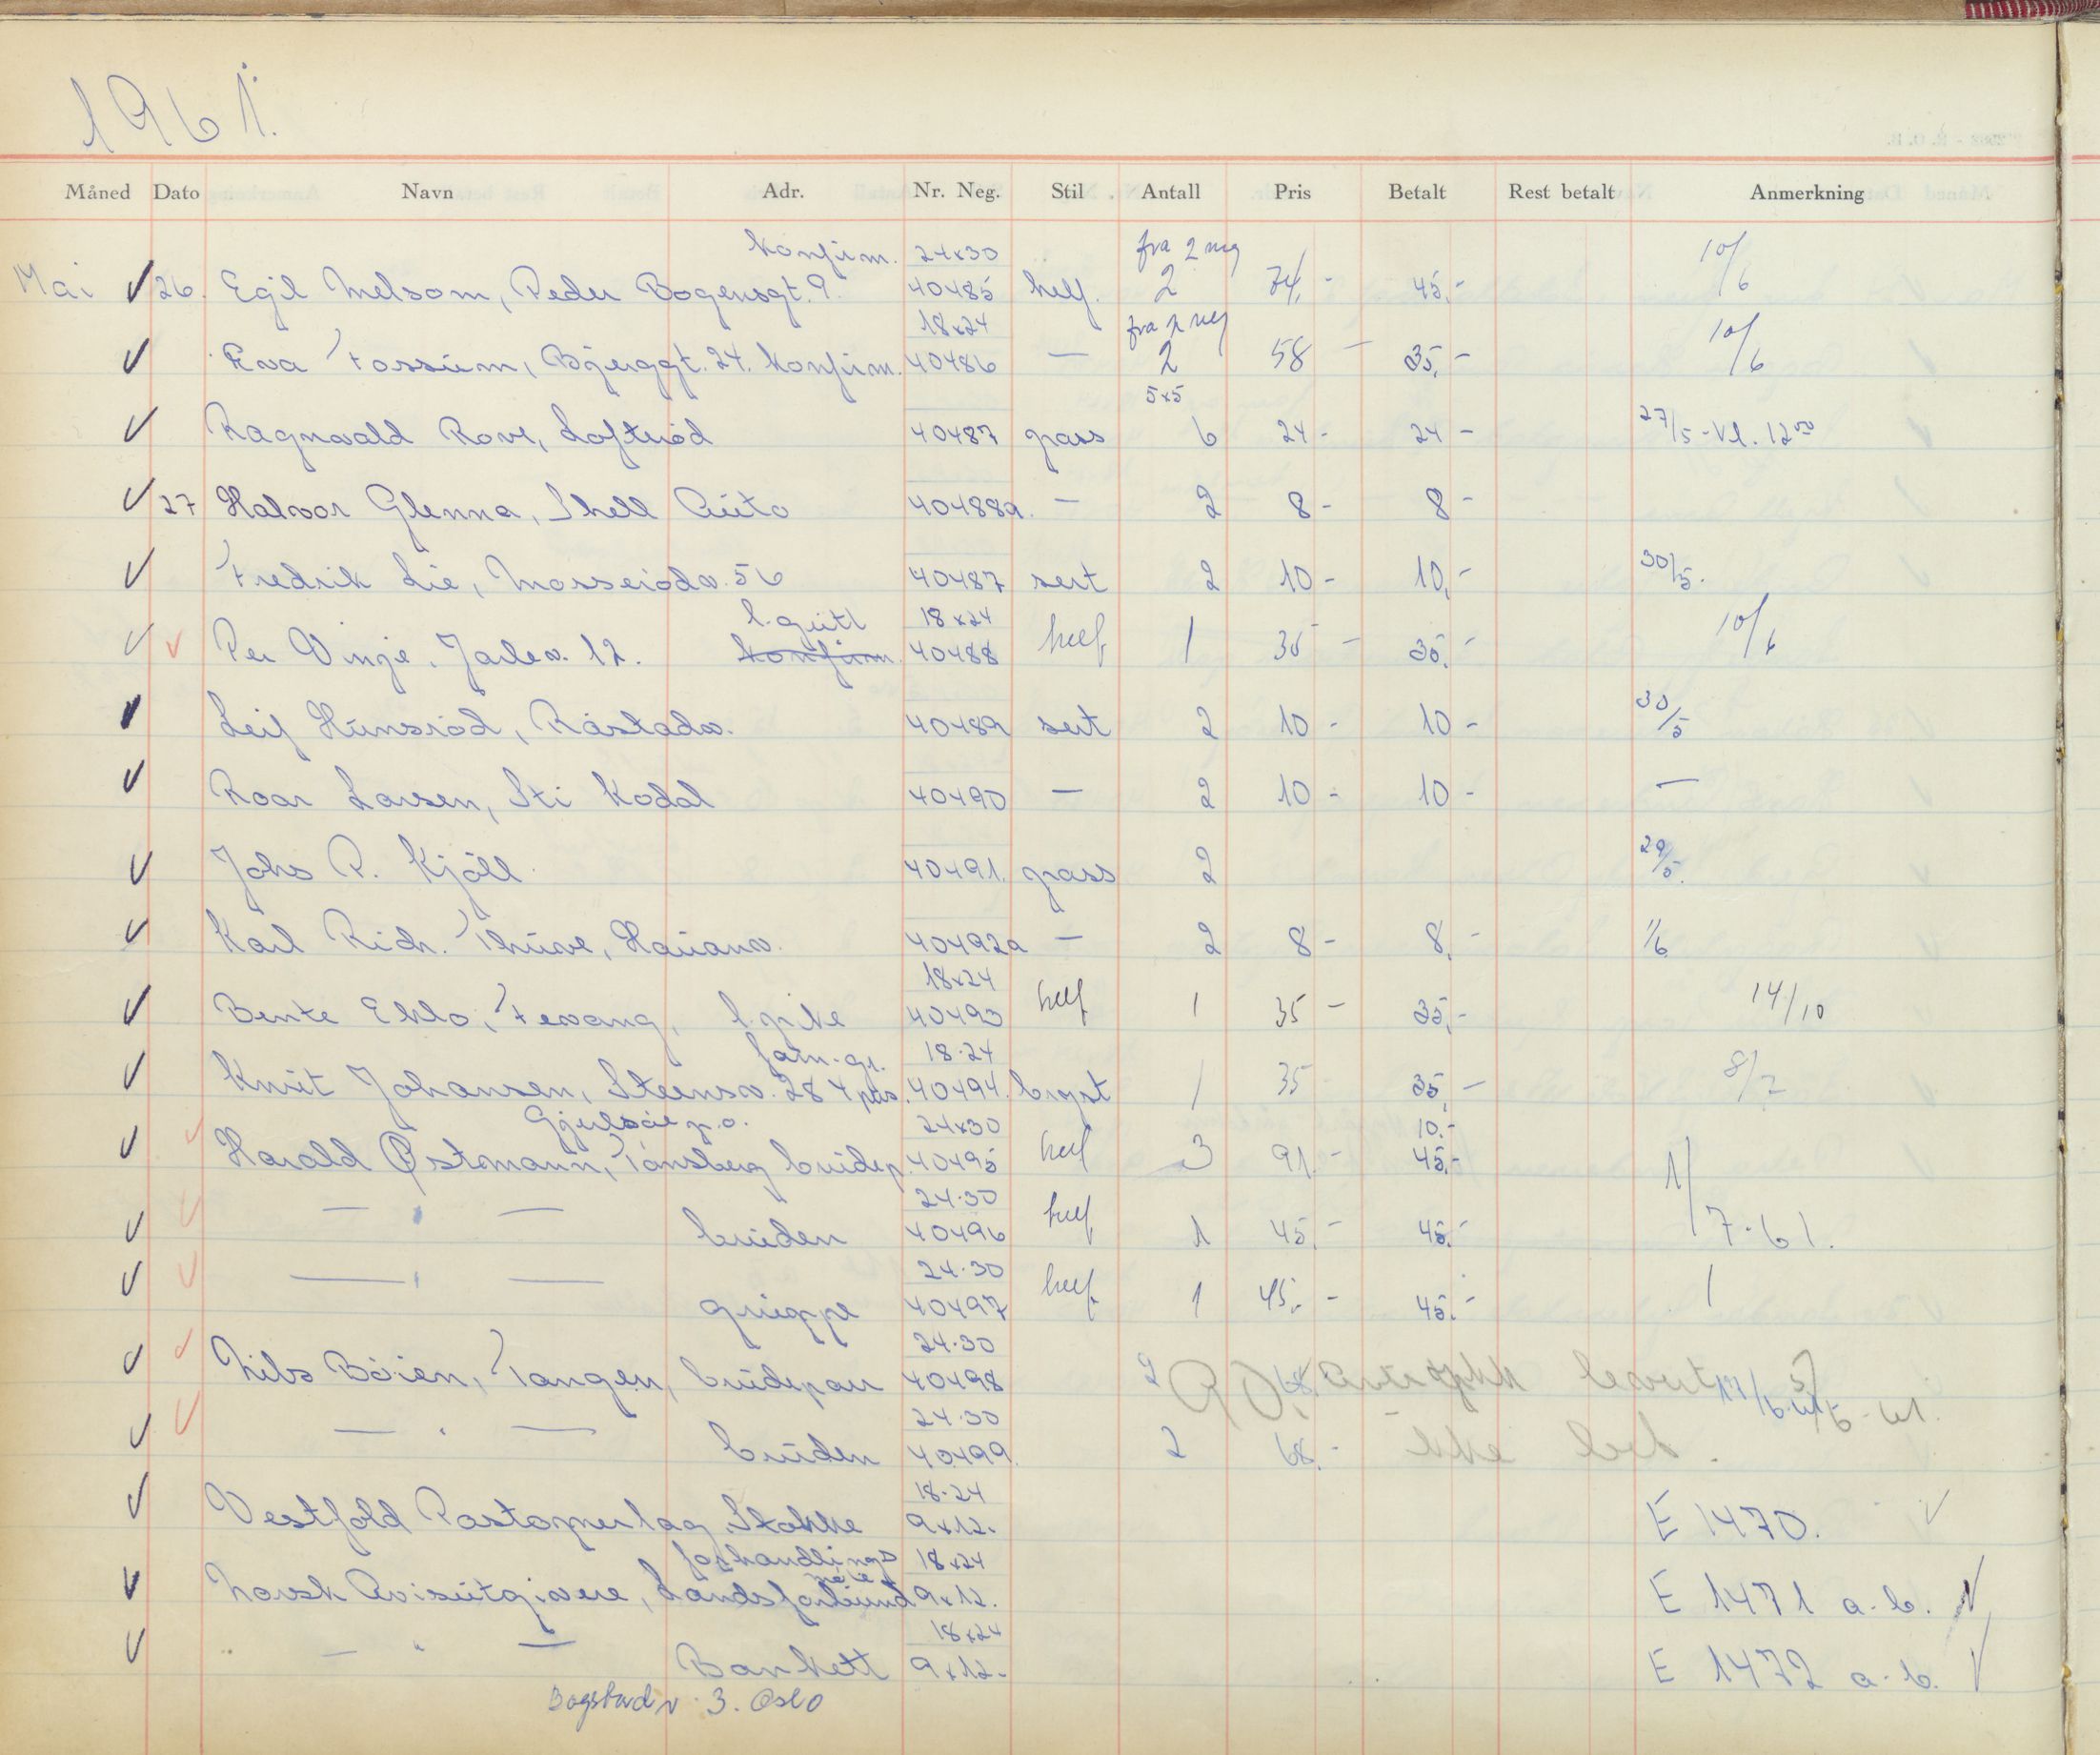 1961.
Måned Dato Navn Adr. Nr. Neg. Stil Antall Pris Betalt Rest betalt Anmerkning
konfirm. 24x30 fra 2 neg
Mai 26. Egil Melsom, Peder Bogensgt. 9. 40485 helf. 2 74,- 45,- 10/6
18x24 fra 2 neg
Eva Fossum, Bjerggt. 24. konfirm. 40486 — 2 58 - 35,- 10/6
5x5
Ragnvald Rove, Løfterød 40487 pass 6 24- 24- 27/5 - kl. 12 00
27 Halvor Glenna, Shell Auto 40488a. — 2 8- 8-
Fredrik Lie, Mosserødv. 56 40487 sert 2 10- 10,- 30/5.
l. gutt 18x24
Per Vinje, Jarlev. 12. konfirm. 40488 helf 1 35 - 35.- 10/6
Leif Hunsrød, Råstadv. 40489 sert 2 10- 10- 30/5
Roar Larsen, Sti Kodal 40490 — 2 10- 10- —
Johs P. Kjøll 40491. pass 2 29/5.
Karl Rich. Thuve, Hauanv. 40492a — 2 8- 8,- 1/6
18x24
Bente Eklo, Fevang, l. pike 40493 helf 1 35 - 35,- 14/10
fam. gr. 18.24
Knut Johansen, Steensv. 28 4 pers. 40494. bryst 1 35 35,- 8/7
Gjelsås p.o. 24x30 10.-
Harald Østmann, Tønsberg brudep. 40495 helf 3 91.- 45,- 1/7-61.
24.30
— " — bruden 40496 helf 1 45,- 45,-
24.30
— " — gruppe 40497 helf. 1 45,- 45.-
24.30
Nils Bøien, Tangen, brudepar 40498 2 68.
24.30
— " — bruden 40499. 2 68.- ikke
18.24
Vestfold Postopnerlag Stokke 9x12. E 1470.
forhandlings 18x24
Norsk Avisutgivere, Landsforbund 9x12. E 1471 a.b.
18x24
— " — Bankett 9x12. E 1472 a.b.
Bogstadv. 3. Oslo